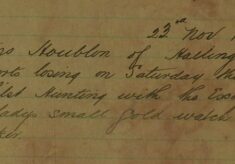 23rd Nov
Houblon of Halling
losing on Saturday th
Hunting with the Ess
lady's small gold watch